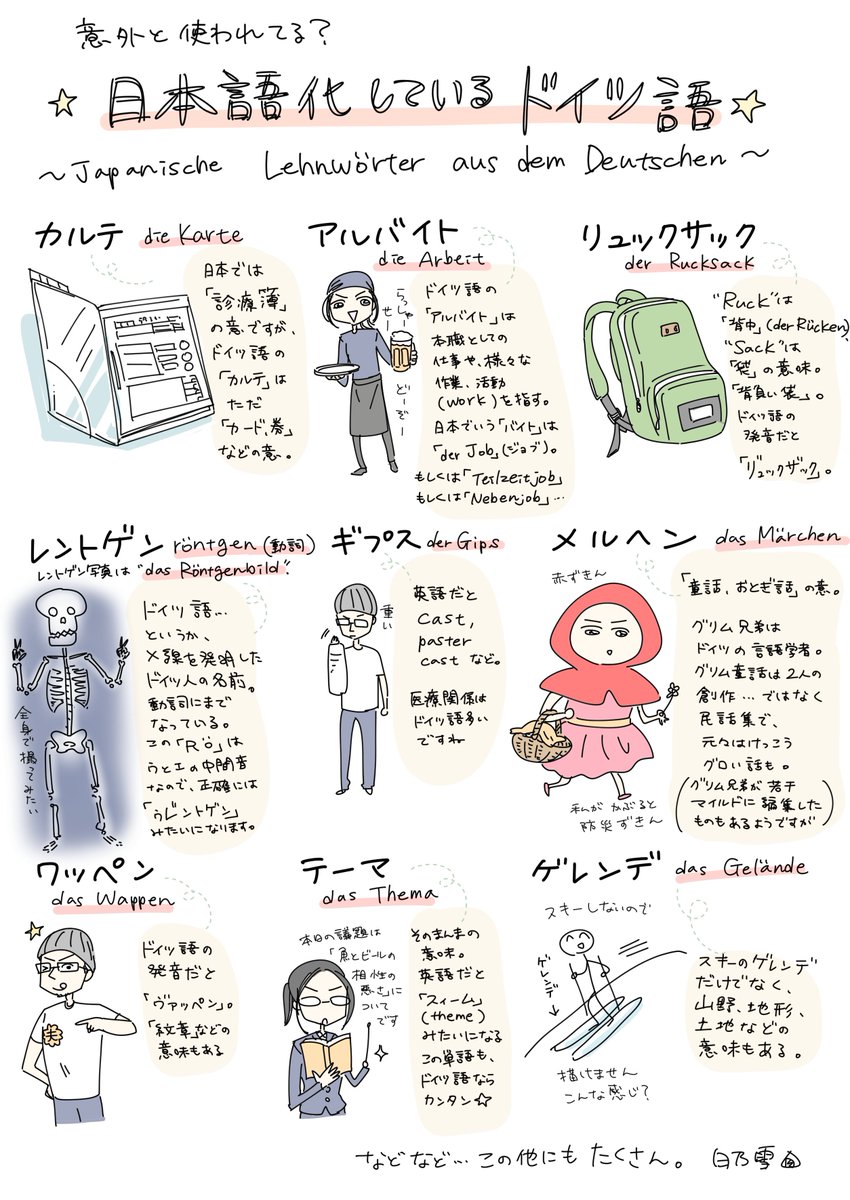 意外と使われてる?
日本語化しているドイツ語
~Japanische Lehnwörter aus dem Deutschen~
カルテ die Karte
日本では
「診療簿」
の意ですが、
ドイツ語の
「カルテ」は
ただ
「カード、巻」
などの意。
アルバイト
die Arbeit
らっしゃー
せー
どーぞー
ドイツ語の
「アルバイト」は
本職としての
仕事や、様々な
作業、活動
(work)を指す。
日本でいう「バイト」は
「der Job」(ジョブ)。
もしくは「Teilzeitjob」
もしくは「Nebenjob」…
リュックサック
der Rucksack
"Ruck"は
「背中」(der Rücken)、
"Sack"は
「袋」の意味。
「背負い袋」。
ドイツ語の
発音だと
「リュックザック」。
レントゲン röntgen(動詞)
レントゲン写真は "das Röntgenbild".
全身で撮ってみたい
ドイツ語…
というか、
X線を発明した
ドイツ人の名前。
動詞にまで
なっている。
この「Rö」は
ウとエの中間音
なので、正確には
「ゥレントゲン」
みたいになります。
ギプス der Gips
重い
英語だと
cast,
paster
cast など。
医療関係は
ドイツ語多い
ですね
メルヘン das Märchen
赤ずきん
「童話、おとぎ話」の意。
グリム兄弟は
ドイツの言語学者。
グリム童話は2人の
創作…ではなく
民話集で、
元々はけっこう
グロい話も。
(グリム兄弟が若干
マイルドに編集した
ものもあるようですが)
私がかぶると
防災ずきん
ワッペン
das Wappen
ドイツ語の
発音だと
「ヴァッペン」。
「紋章」などの
意味もある
テーマ
das Thema
本日の議題は
「魚とビールの
相性の
悪さ」に
ついて
です
そのまんまの
意味。
英語だと
「スィーム」
(theme)
みたいになる
この単語も、
ドイツ語なら
カンタン☆
ゲレンデ das Gelände
スキーしないので
ゲレンデ→
描けません
こんな感じ?
スキーのゲレンデ
だけでなく、
山野、地形、
土地などの
意味もある。
などなど…この他にもたくさん。 白乃雪